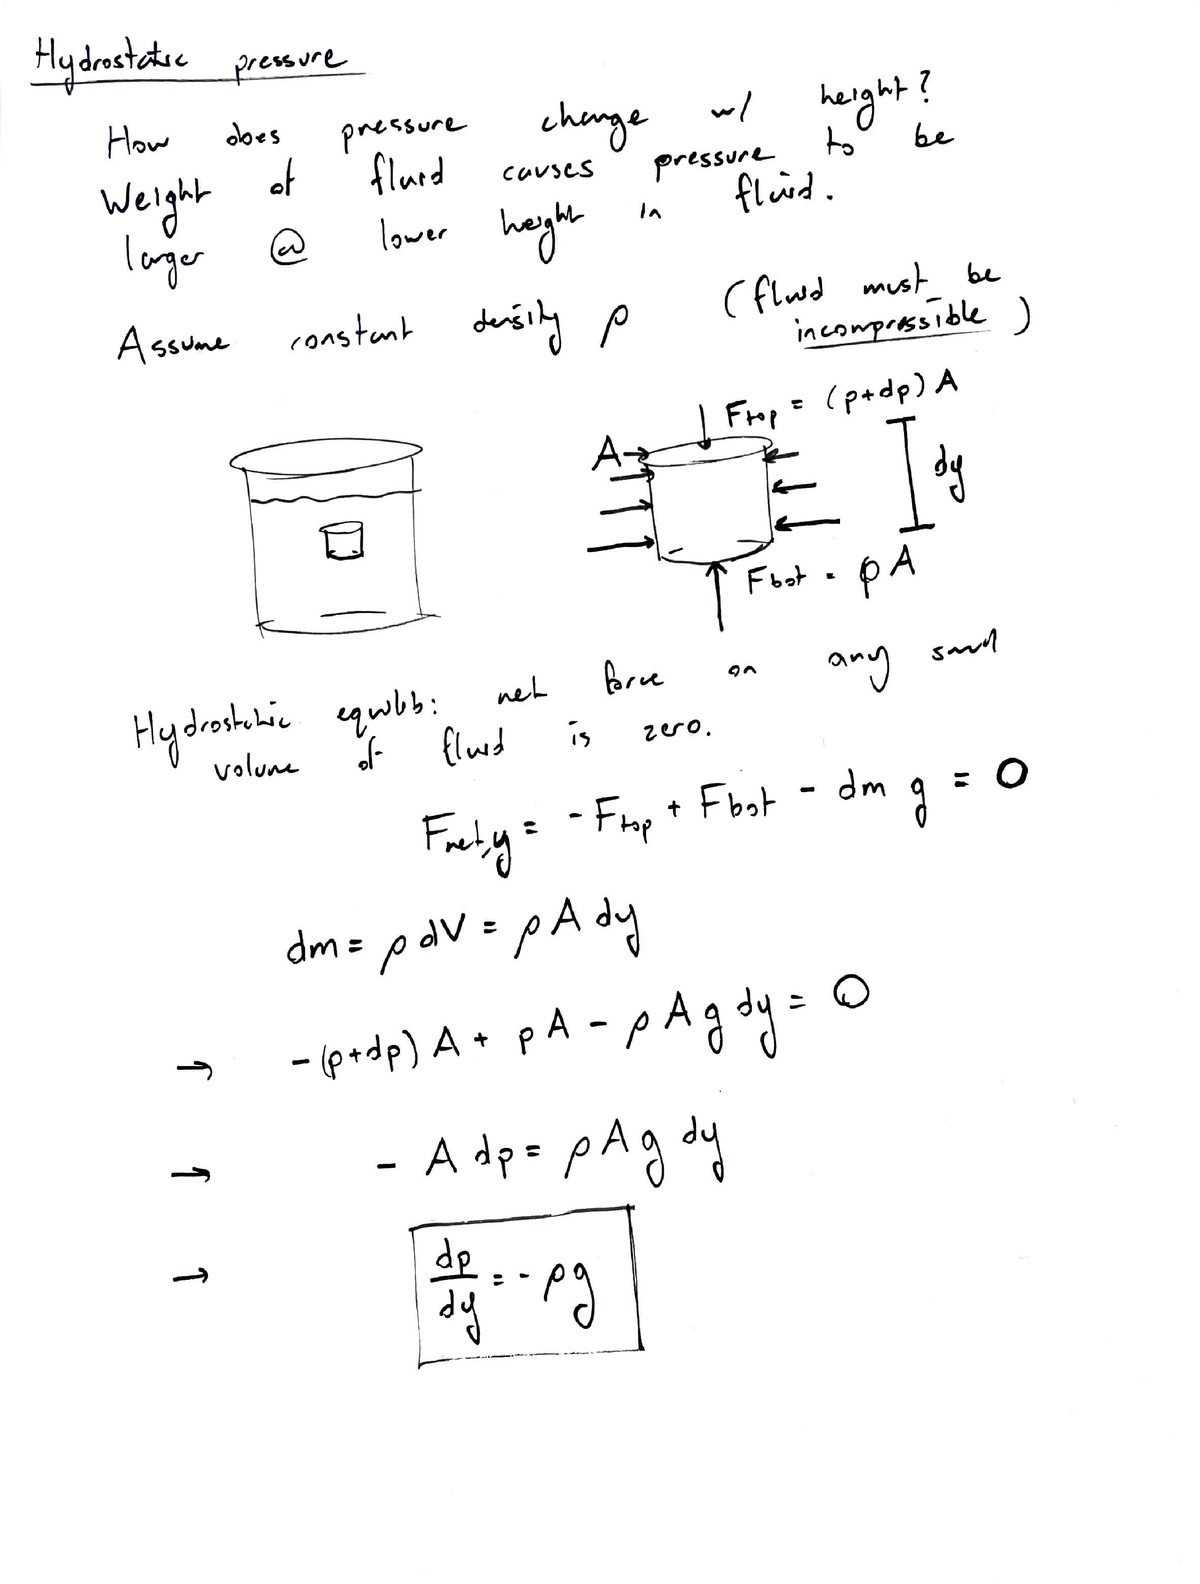 Hydrostatic pressure
How does pressure change w/ height?
Weight of fluid causes pressure to be
larger @ lower height in fluid.
Assume constant density ρ (fluid must be
incompressible)
F_top = (p+dp) A
A
dy
F_bot = p A
Hydrostatic equilib: net force on any small
volume of fluid is zero.
F_net,y = - F_top + F_bot - dm g = 0
dm = ρ dV = ρ A dy
→ -(p+dp) A + p A - ρ A g dy = 0
→ - A dp = ρ A g dy
→ dp/dy = - ρg